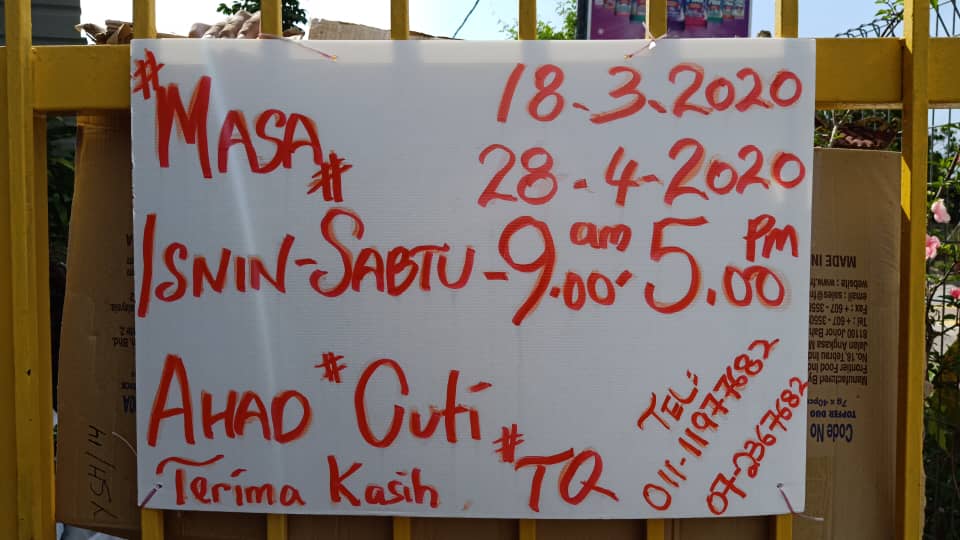 #MASA# 18.3.2020
28.4.2020
ISNIN-SABTU-9.00am-5.00pm
AHAD #Cuti#
Terima Kasih TQ
TEL: 011-11977682
07-2367682
MADE IN
Code No
TOPFER DUO
7g x 40pc
Manufactured By
Frontier Food Ind
No.18, Tebrau Ind
Jalan Angkasa M
81100 Johor Bah
Tel : + 607 - 355
Fax : + 607 - 355
email : sales@fr
website : www.fr
YSH/14